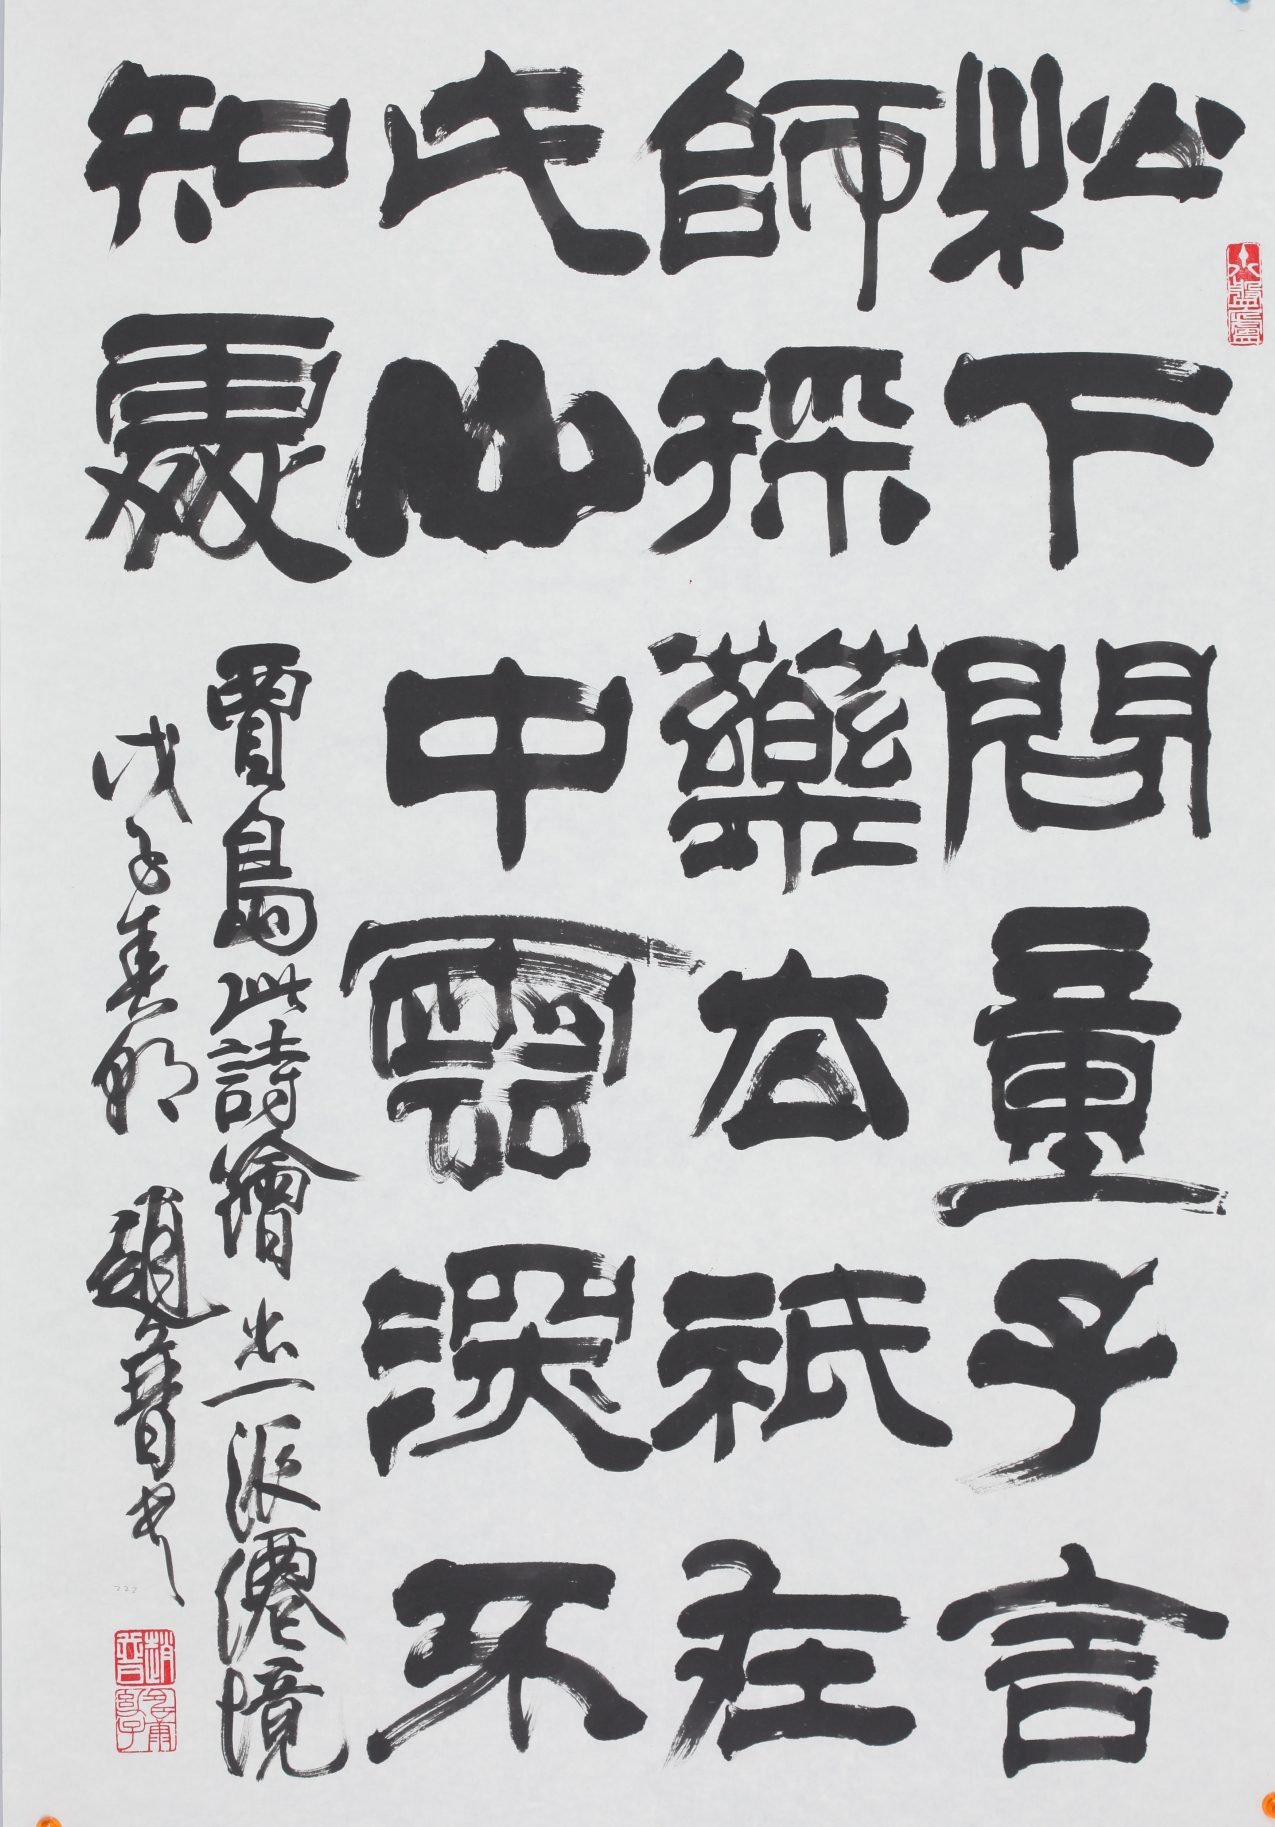 松下問童子言
師採藥去祇在
此山中雲深不
知處
賈島此詩繪出一派僊境
戊子春 趙普書